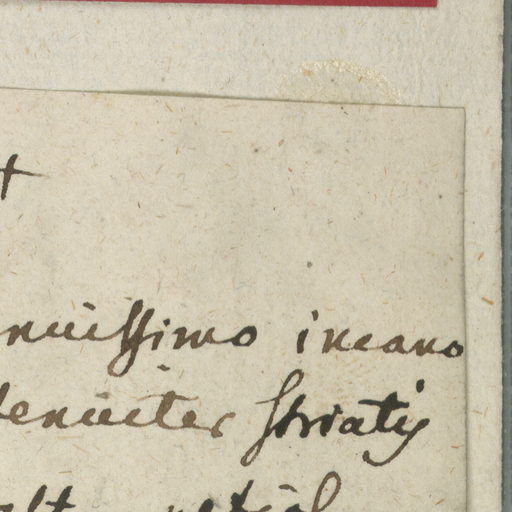 nuissimo incano
tenuiter striatis
petiol